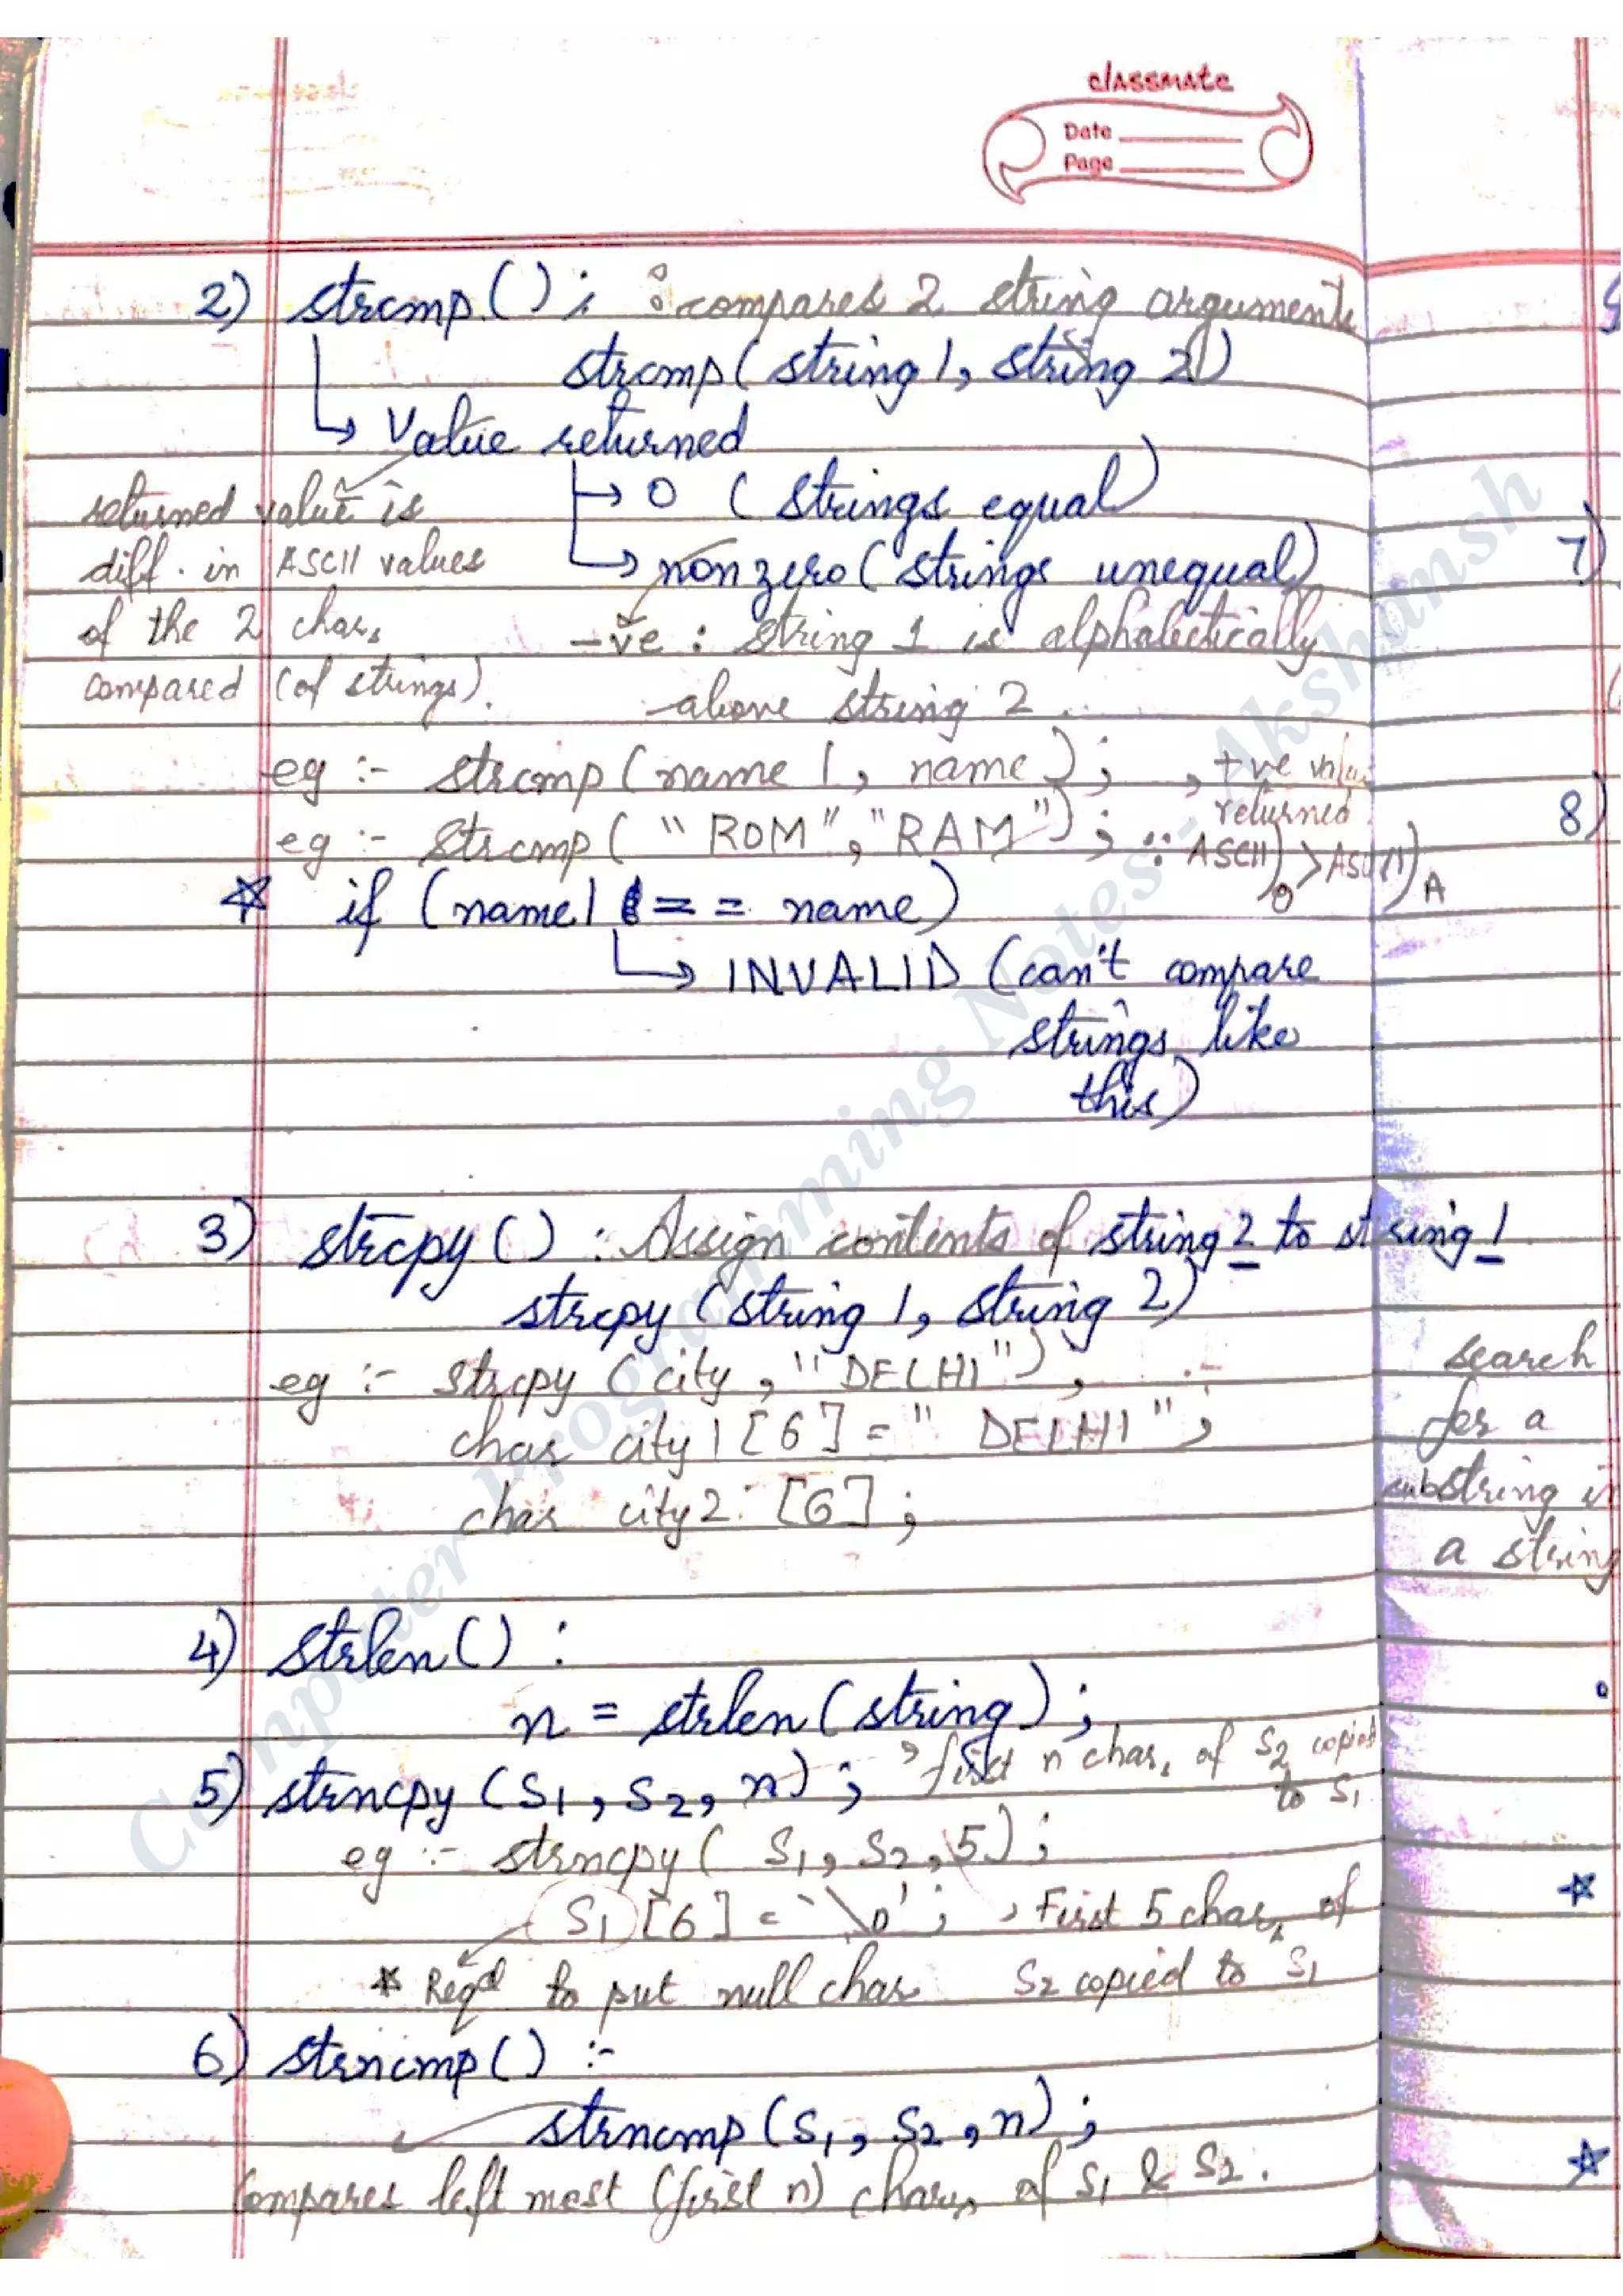 classmate
Date
Page
2) strcmp() ; : compares 2 string arguments
strcmp( string 1, string 2)
↳ Value returned
→ 0 ( strings equal)
↳ non zero ( strings unequal)
returned value is
diff. in ASCII values
of the 2 chars
compared (of strings).
-ve : string 1 is alphabetically
above string 2.
eg :- strcmp(name 1, name ) ; , +ve value
returned
eg :- strcmp( "ROM", "RAM") ; ∵ ASCII)O > ASCII)A
☆ if (name1 == name)
↳ INVALID (can't compare
strings like
this)
3) strcpy() : Assign contents of string 2 to string 1
strcpy (string 1, string 2)
eg :- strcpy ( city , "DELHI") ,
char city1 [6] = " DELHI" ;
char city2 [6] ;
4) strlen() :
n = strlen(string) ;
5) strncpy (S1, S2, n) ; , first n chars of S2 copied
to S1
eg :- strncpy( S1, S2, 5) ;
S1 [6] = '\0' ; , First 5 chars of
S2 copied to S1
* Reqd to put null char
6) strncmp() :-
strncmp (S1, S2, n) ;
Compares left most (first n) chars of S1 & S2.
7)
8)
search
for a
substring in
a string
Computer Programming Notes - Akshansh